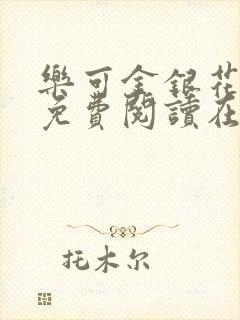 樂可金銀花
免費閱讀在
托木尔